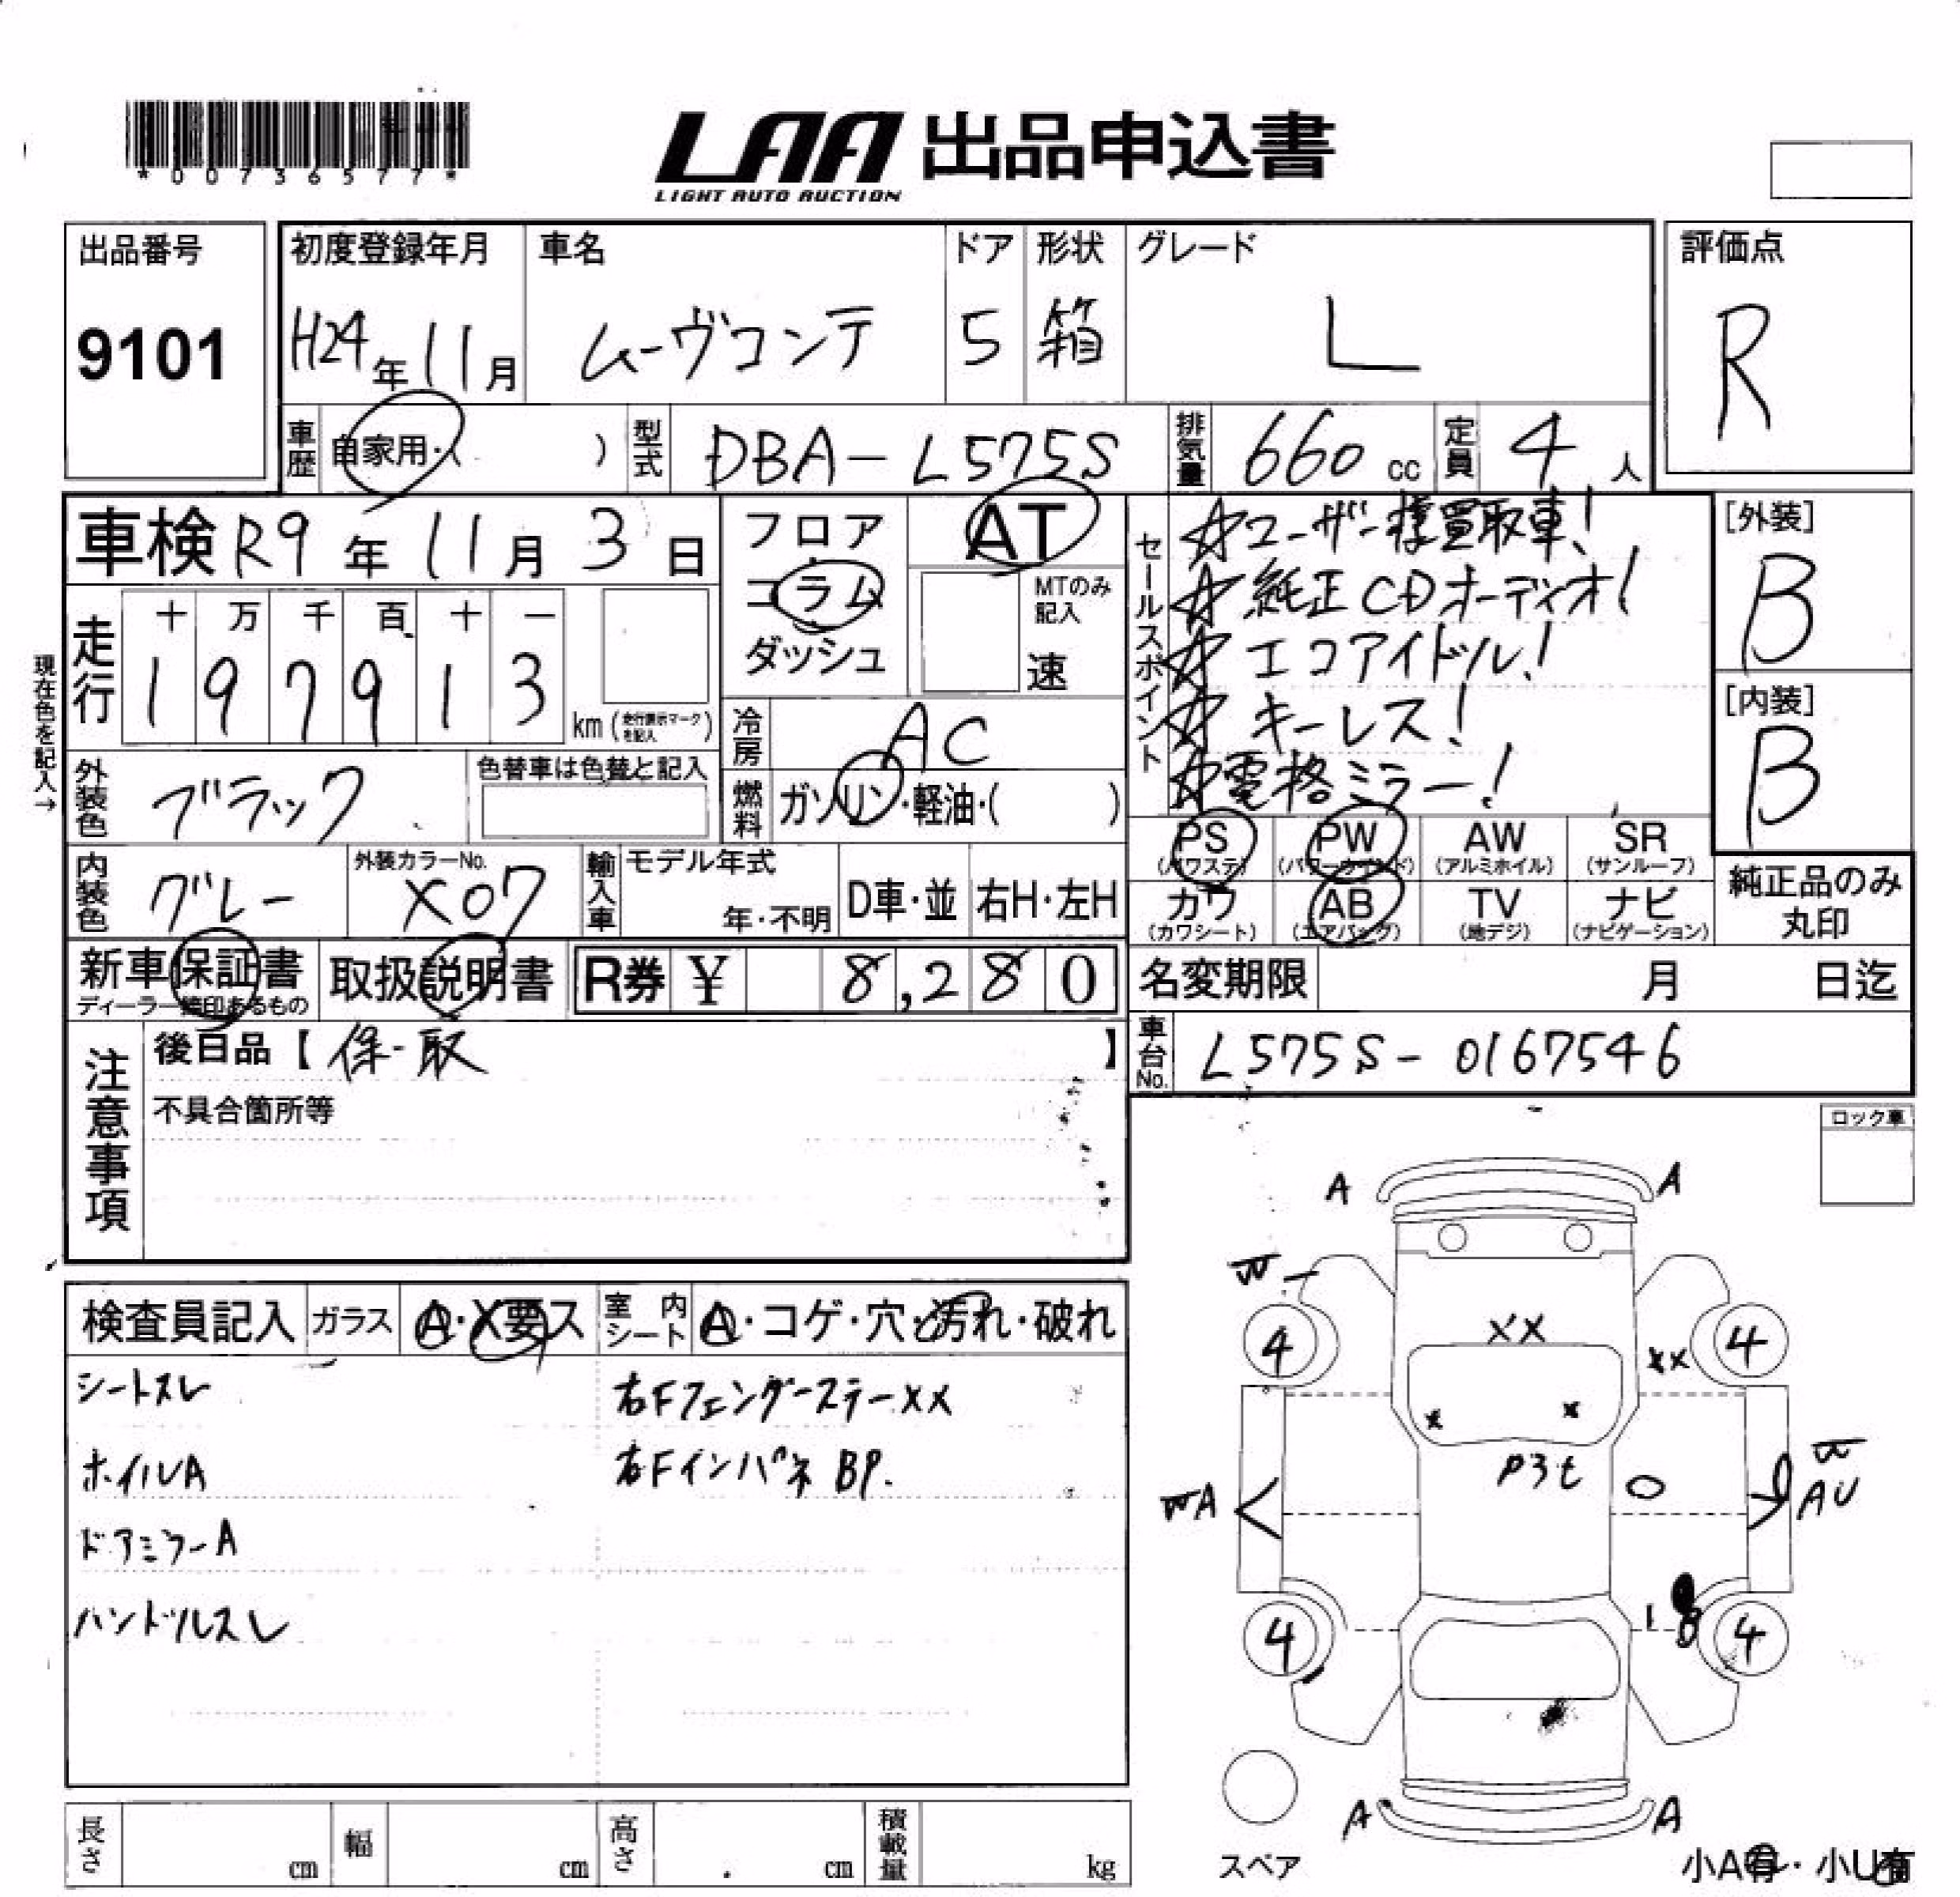 *00736577*
LAA 出品申込書
LIGHT AUTO AUCTION
出品番号
9101
初度登録年月
H24年11月
車名
ムーヴコンテ
ドア
5
形状
箱
グレード
L
評価点
R
車歴
自家用・( )
型式
DBA-L575S
排気量
660 cc
定員
4人
車検 R9年11月3日
フロア
コラム
ダッシュ
AT
MTのみ
記入
速
セールスポイント
☆ユーザー様買取車!
☆純正CDオーディオ!
☆エコアイドル!
☆キーレス!
☆電格ミラー!
[外装]
B
[内装]
B
現在色を記入→
走行
十 万 千 百 十 一
1 9 7 9 1 3
km (走行表示マークを記入)
冷房
AC
外装色
ブラック
色替車は色替と記入
燃料
ガソリン・軽油・( )
PS (パワステ)
PW (パワーウインド)
AW (アルミホイル)
SR (サンルーフ)
カワ (カワシート)
AB (エアバッグ)
TV (地デジ)
ナビ (ナビゲーション)
純正品のみ
丸印
内装色
グレー
外装カラーNo.
X07
輸入車
モデル年式
年・不明
D車・並
右H・左H
新車保証書
ディーラー捺印あるもの
取扱説明書
R券 ¥ 8,280
名変期限 月 日迄
車台No.
L575S-0167546
注意事項
後日品【保-取】
不具合箇所等
ロック車
検査員記入
ガラス
A・X要ス
室内
シート
A・コゲ・穴・汚れ・破れ
シートスレ
ホイルA
ドアミラーA
ハンドルスレ
右FフェンダーステーXX
右Fインパネ BP.
A A
4 XX XX 4
P3t
A AU
4 4
A A
スペア
長さ cm
幅 cm
高さ cm
積載量 kg
小A有・小U有